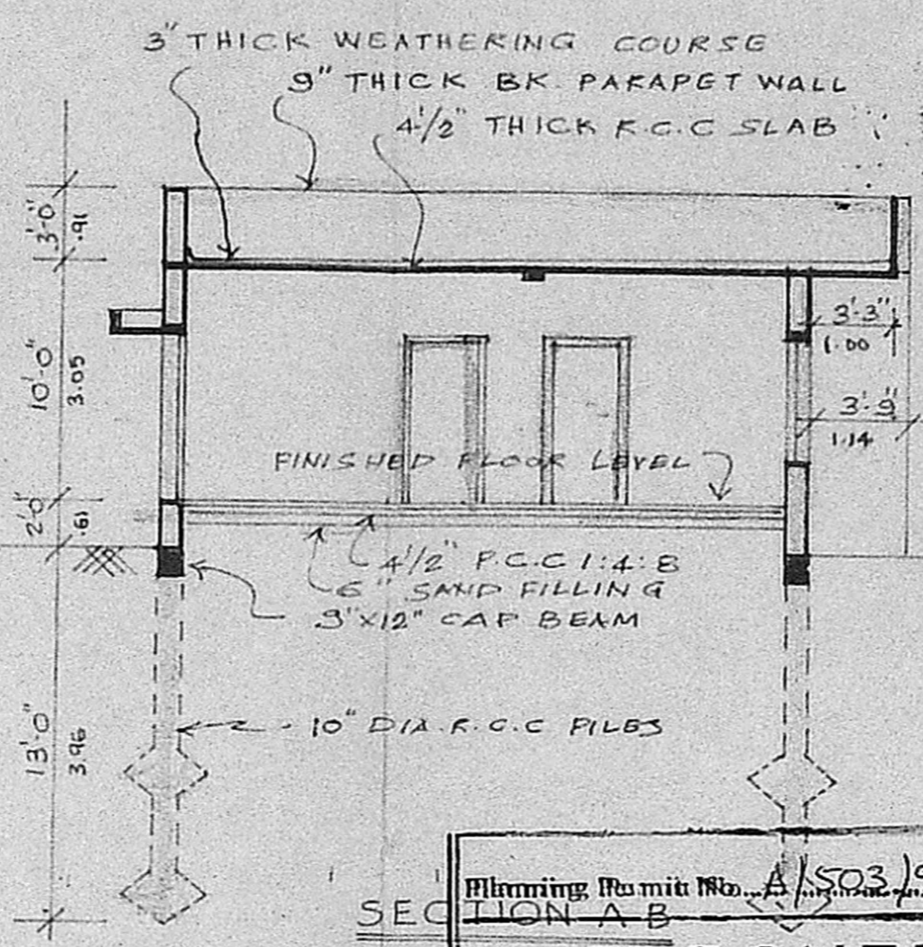 3" THICK WEATHERING COURSE
9" THICK BK. PARAPET WALL
4½" THICK R.C.C SLAB
3'-0"
.91
10'-0"
3.05
2'0"
.61
13'-0"
3.96
3'-3"
1.00
3'-9"
1.14
FINISHED FLOOR LEVEL
4½" P.C.C 1:4:8
6" SAND FILLING
9"x12" CAP BEAM
10" DIA.R.C.C PILES
Planning Permit No. A/503/
SECTION A B